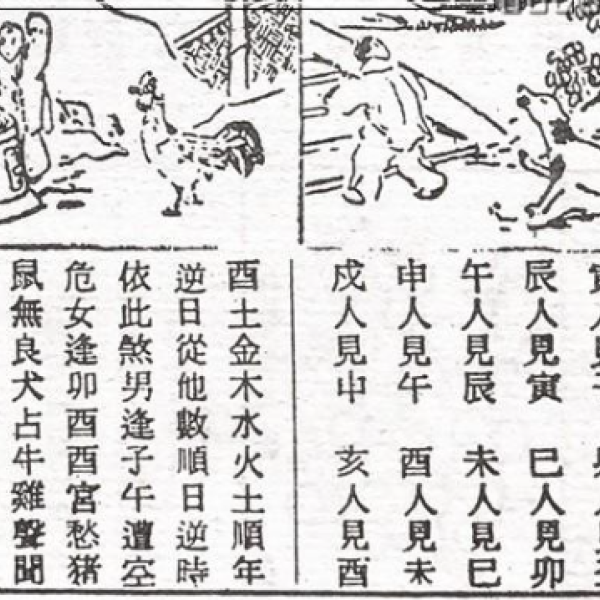 辰人見寅 巳人見卯
午人見辰 未人見巳
申人見午 酉人見未
戌人見申 亥人見酉
酉土金木水火土順年
逆日從他數順日逆時
依此煞男逢子午遭空
危女逢卯酉酉宮愁猪
鼠無良犬占牛雞聲聞